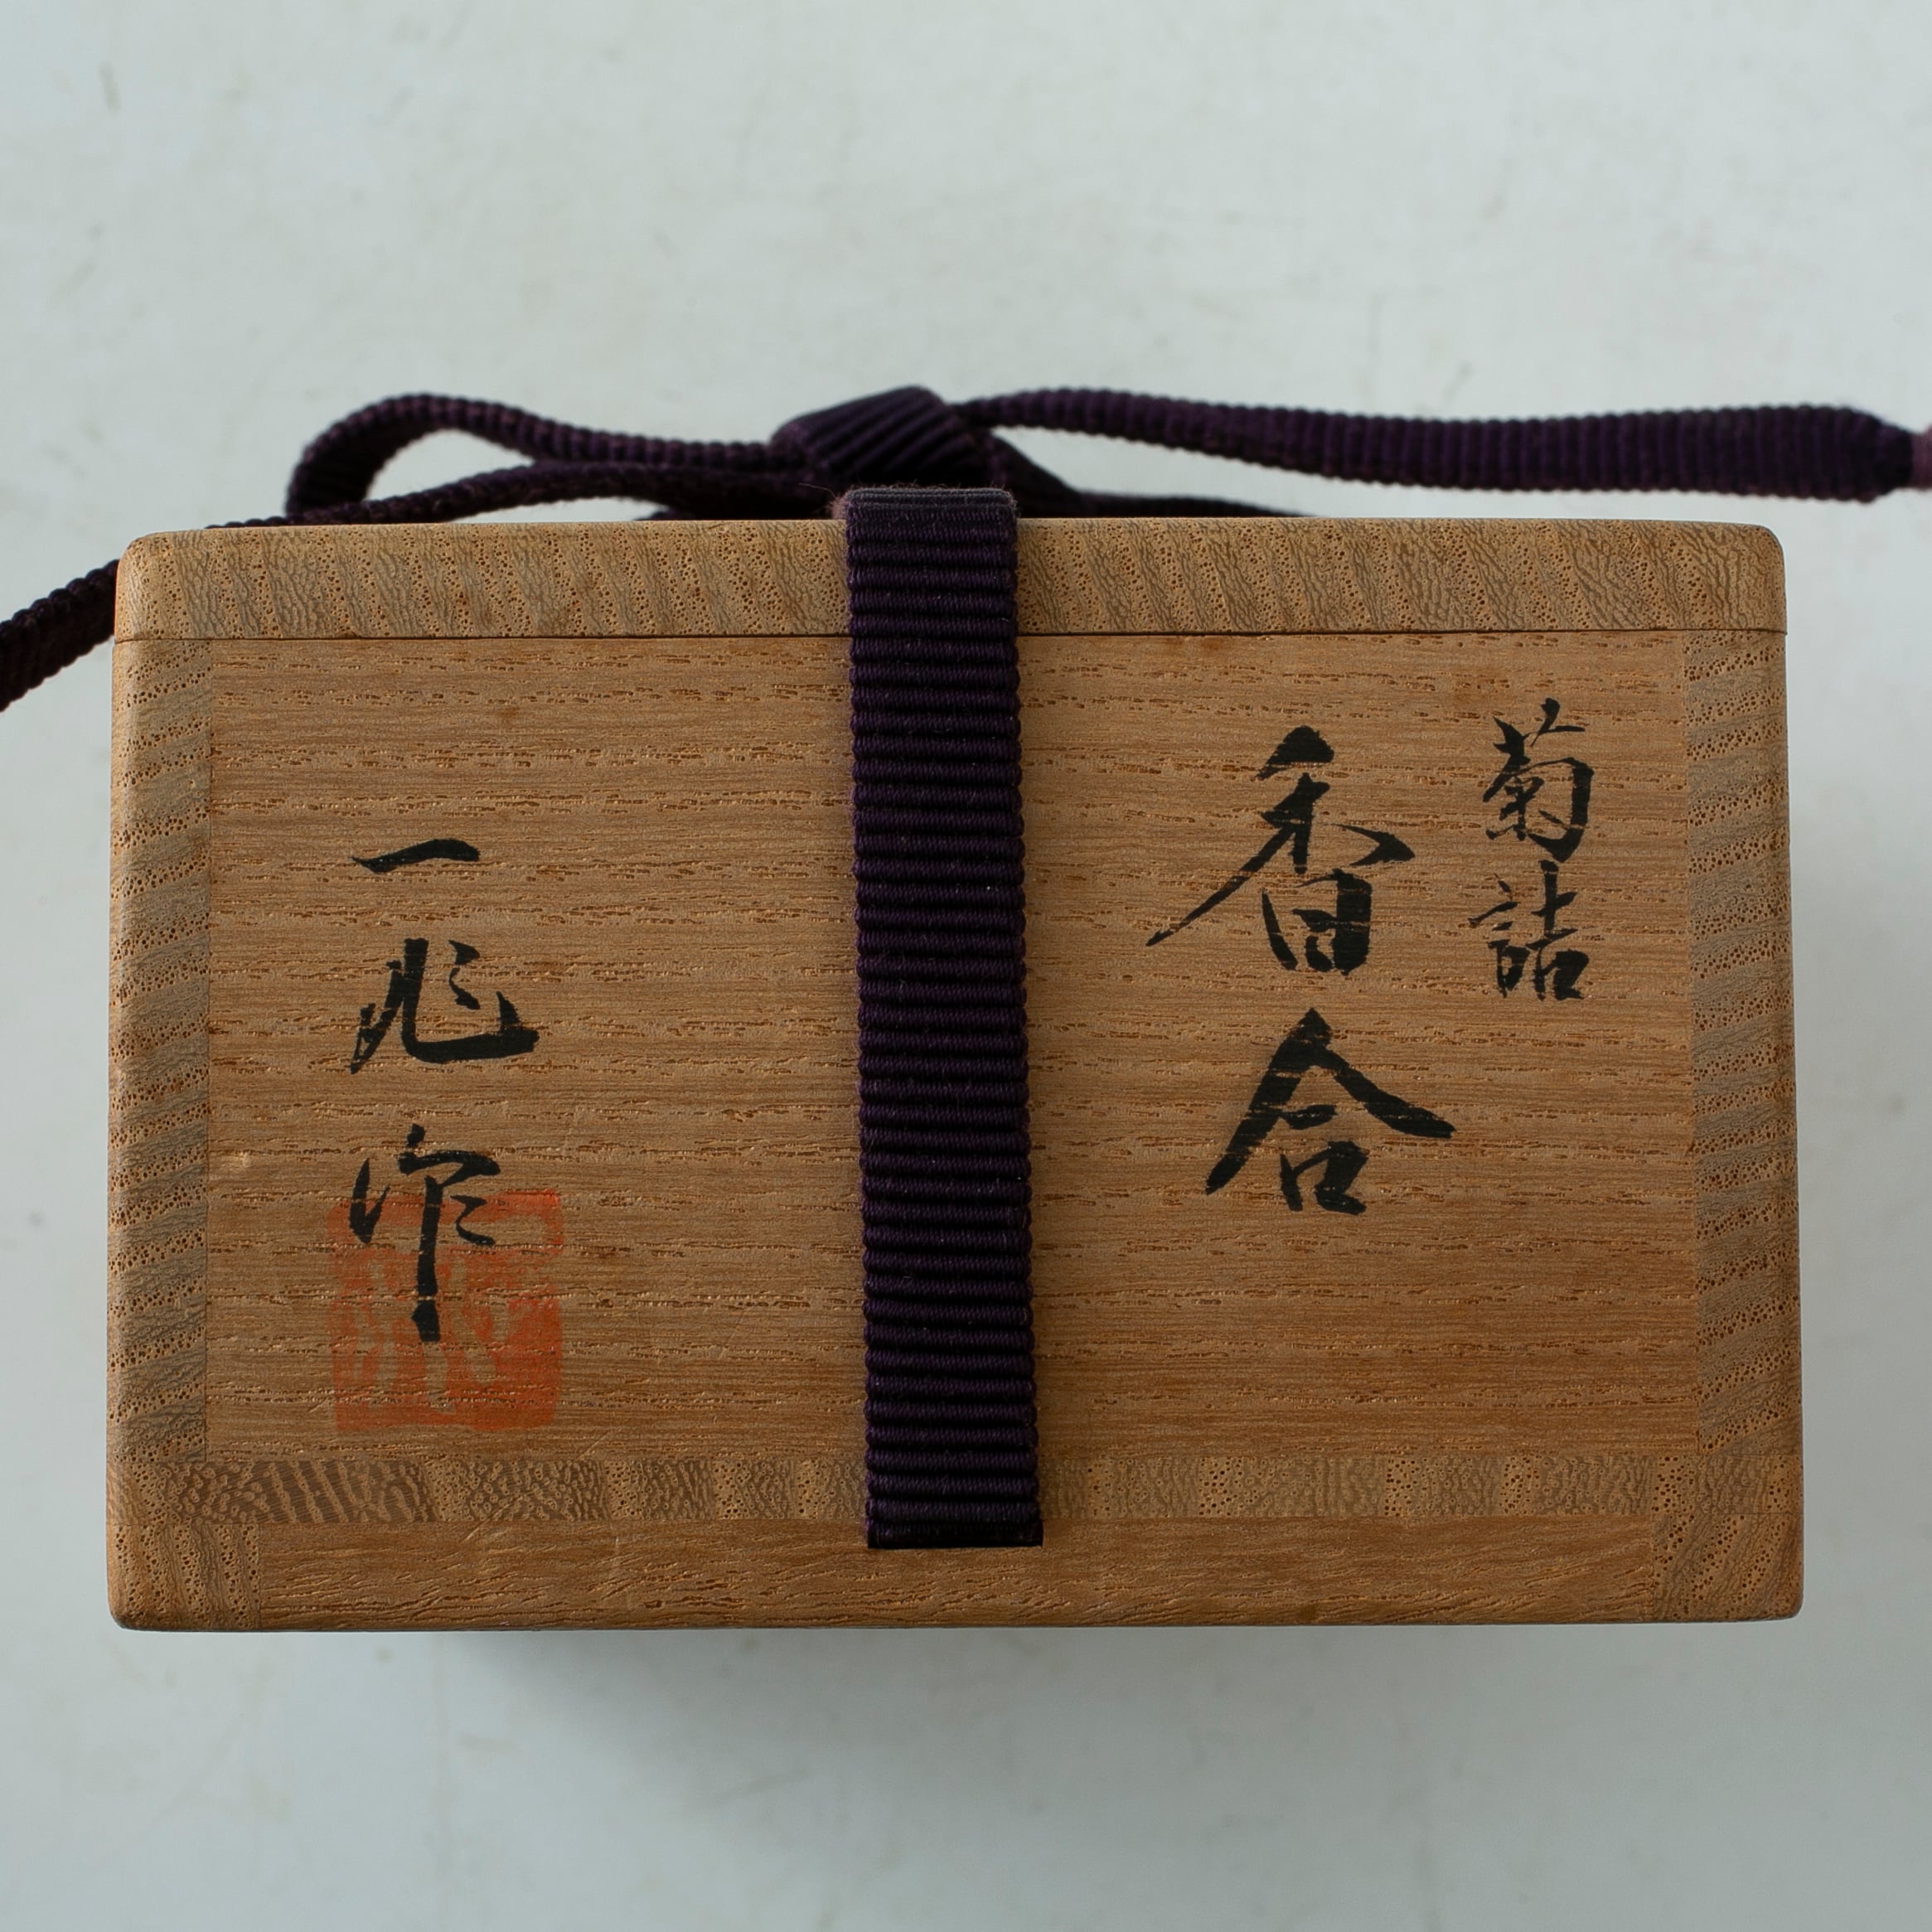 菊詰
香合
一兆作